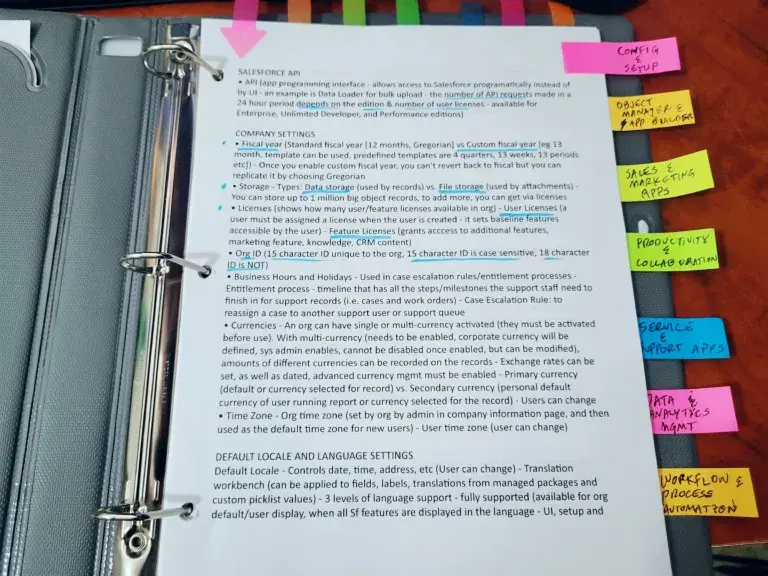 SALESFORCE API
• API (app programming interface - allows access to Salesforce programatically instead of
by UI - an example is Data Loader for bulk upload - the number of API requests made in a
24 hour period depends on the edition & number of user licenses - available for
Enterprise, Unlimited Developer, and Performance editions)
COMPANY SETTINGS
• Fiscal year (Standard fiscal year [12 months, Gregorian] vs Custom fiscal year [eg 13
month, template can be used, predefined templates are 4 quarters, 13 weeks, 13 periods
etc]) - Once you enable custom fiscal year, you can't revert back to fiscal but you can
replicate it by choosing Gregorian
• Storage - Types: Data storage (used by records) vs. File storage (used by attachments) -
You can store up to 1 million big object records, to add more, you can get via licenses
• Licenses (shows how many user/feature licenses available in org) - User Licenses (a
user must be assigned a license when the user is created - it sets baseline features
accessible by the user) - Feature Licenses (grants acccess to additional features,
marketing feature, knowledge, CRM content)
• Org ID (15 character ID unique to the org, 15 character ID is case sensitive, 18 character
ID is NOT)
• Business Hours and Holidays - Used in case escalation rules/entitlement processes -
Entitlement process - timeline that has all the steps/milestones the support staff need to
finish in for support records (i.e. cases and work orders) - Case Escalation Rule: to
reassign a case to another support user or support queue
• Currencies - An org can have single or multi-currency activated (they must be activated
before use). With multi-currency (needs to be enabled, corporate currency will be
defined, sys admin enables, cannot be disabled once enabled, but can be modified),
amounts of different currencies can be recorded on the records - Exchange rates can be
set, as well as dated, advanced currency mgmt must be enabled - Primary currency
(default or currency selected for record) vs. Secondary currency (personal default
currency of user running report or currency selected for the record) - Users can change
• Time Zone - Org time zone (set by org by admin in company information page, and then
used as the default time zone for new users) - User time zone (user can change)
DEFAULT LOCALE AND LANGUAGE SETTINGS
Default Locale - Controls date, time, address, etc (User can change) - Translation
workbench (can be applied to fields, labels, translations from managed packages and
custom picklist values) - 3 levels of language support - fully supported (available for org
default/user display, when all Sf features are displayed in the language - UI, setup and
CONFIG
&
SETUP
OBJECT
MANAGER &
APP BUILDER
SALES &
MARKETING
APPS
PRODUCTIVITY
&
COLLABORATION
SERVICE
&
SUPPORT APPS
DATA &
ANALYTICS
MGMT
WORKFLOW &
PROCESS
AUTOMATION